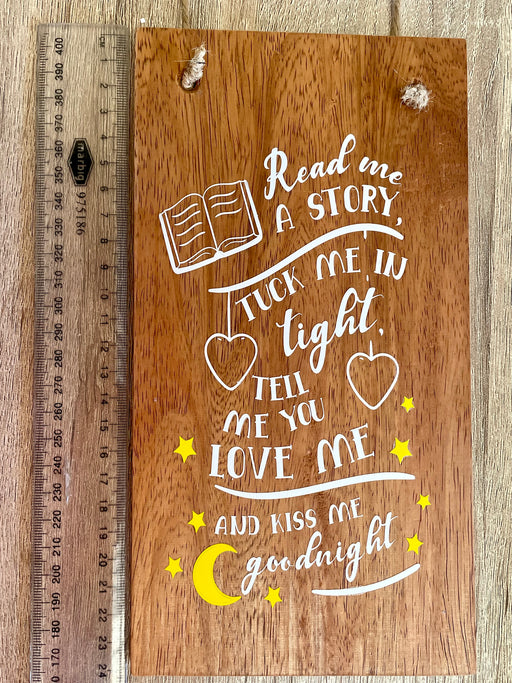 Read me
A STORY,
TUCK ME IN
tight,
TELL
ME YOU
LOVE ME
AND KISS ME
goodnight
CM
1
2
3
4
5
6
7
8
9
10
11
12
13
14
15
16
17
18
19
20
21
22
23
24
400
390
380
370
360
350
340
330
320
310
300
290
280
270
260
250
240
230
220
210
200
190
180
170
160
marbig
975186